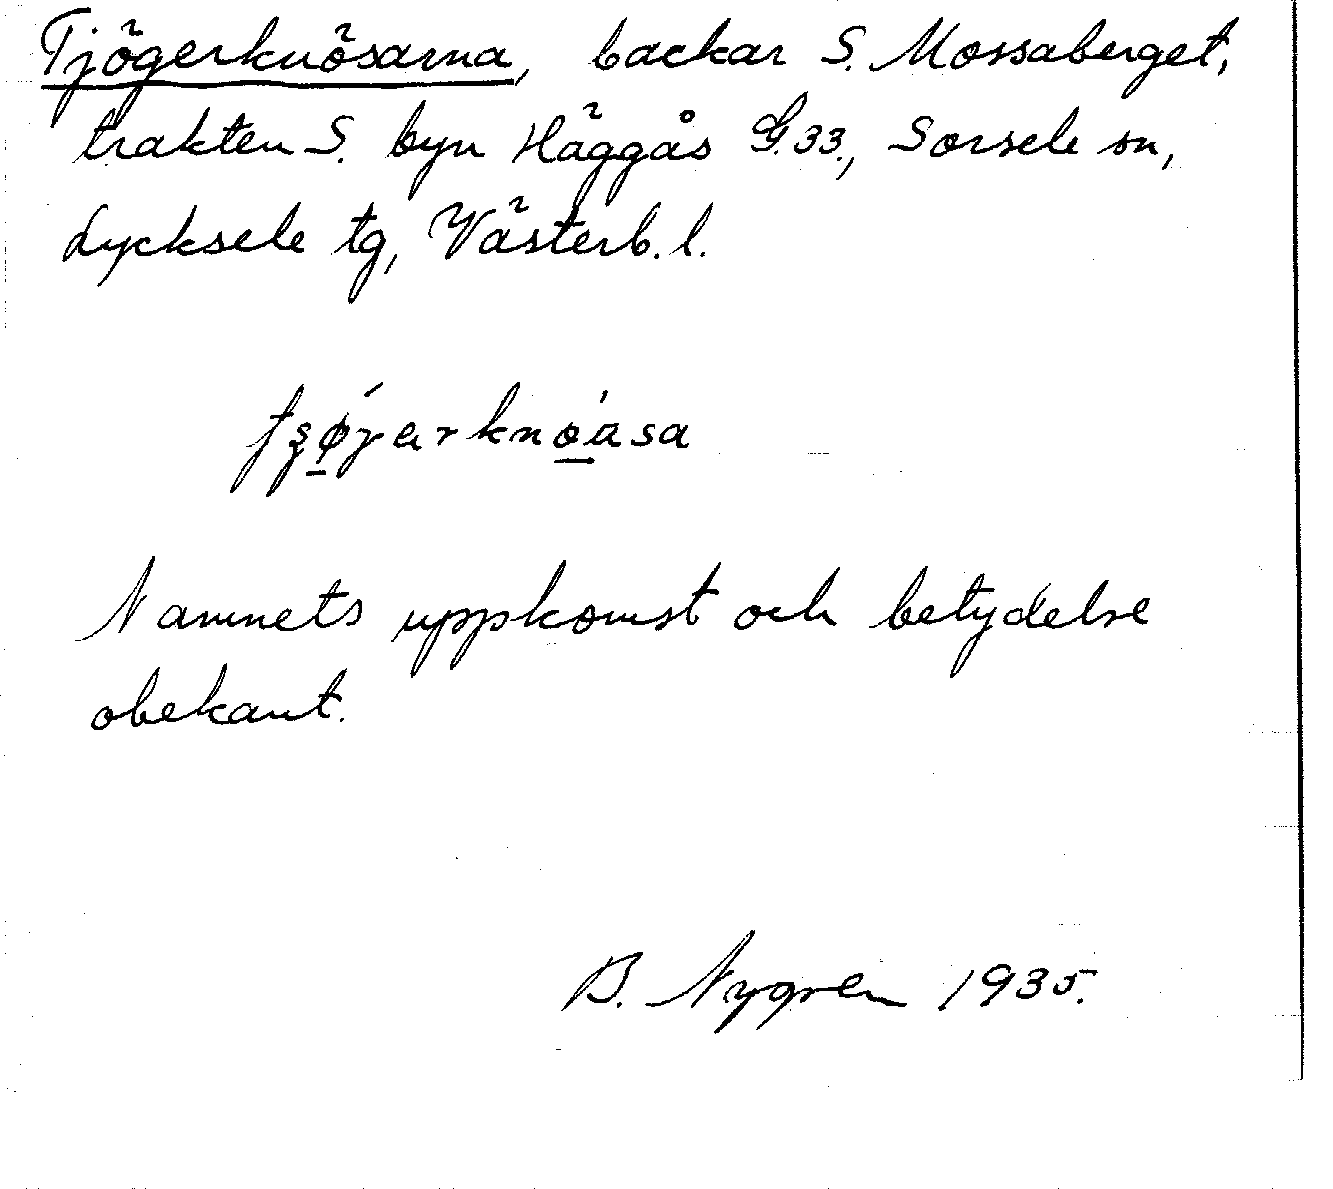 Tjögerknösarna, backar S. Mossaberget,
trakten S. byn Häggås G.33., Sorsele sn,
Lycksele tg, Västerb. l.
Namnets uppkomst och betydelse
obekant.
B. Nygren 1935.